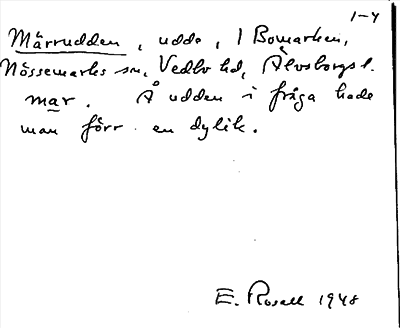 1-4
Märrudden, udde, I Bomarken,
Nössemarks sn, Vedbo hd, Älvsborgs l.
mar. Å udden i fråga hade
man förr en dylik.
E. Rosell 1948